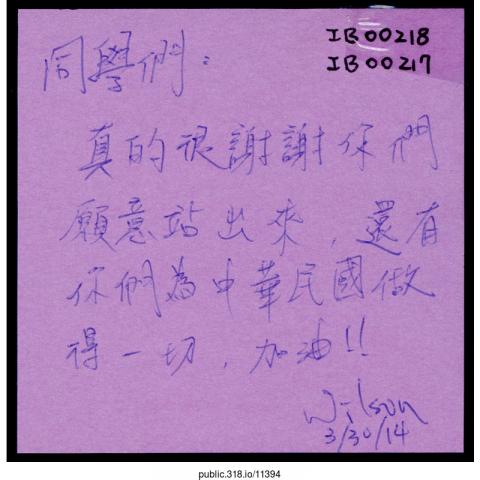 IB00218
IB00217
同學們：
真的很謝謝你們
願意站出來，還有
你們為中華民國做
得一切，加油!!
Wilson
3/30/14
public.318.io/11394